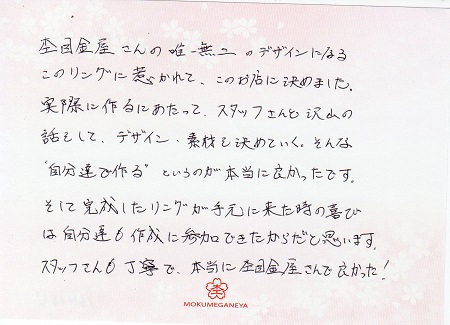 杢目金屋さんの唯一無二のデザインになる
このリングに惹かれて、このお店に決めました。
実際に作るにあたって、スタッフさんと沢山の
話をして、デザイン・素材を決めていく。そんな
"自分達で作る"というのが本当に良かったです。
そして完成したリングが手元に来た時の喜び
は自分達も作成に参加できたからだと思います。
スタッフさんも丁寧で、本当に杢目金屋さんで良かった!
MOKUMEGANEYA